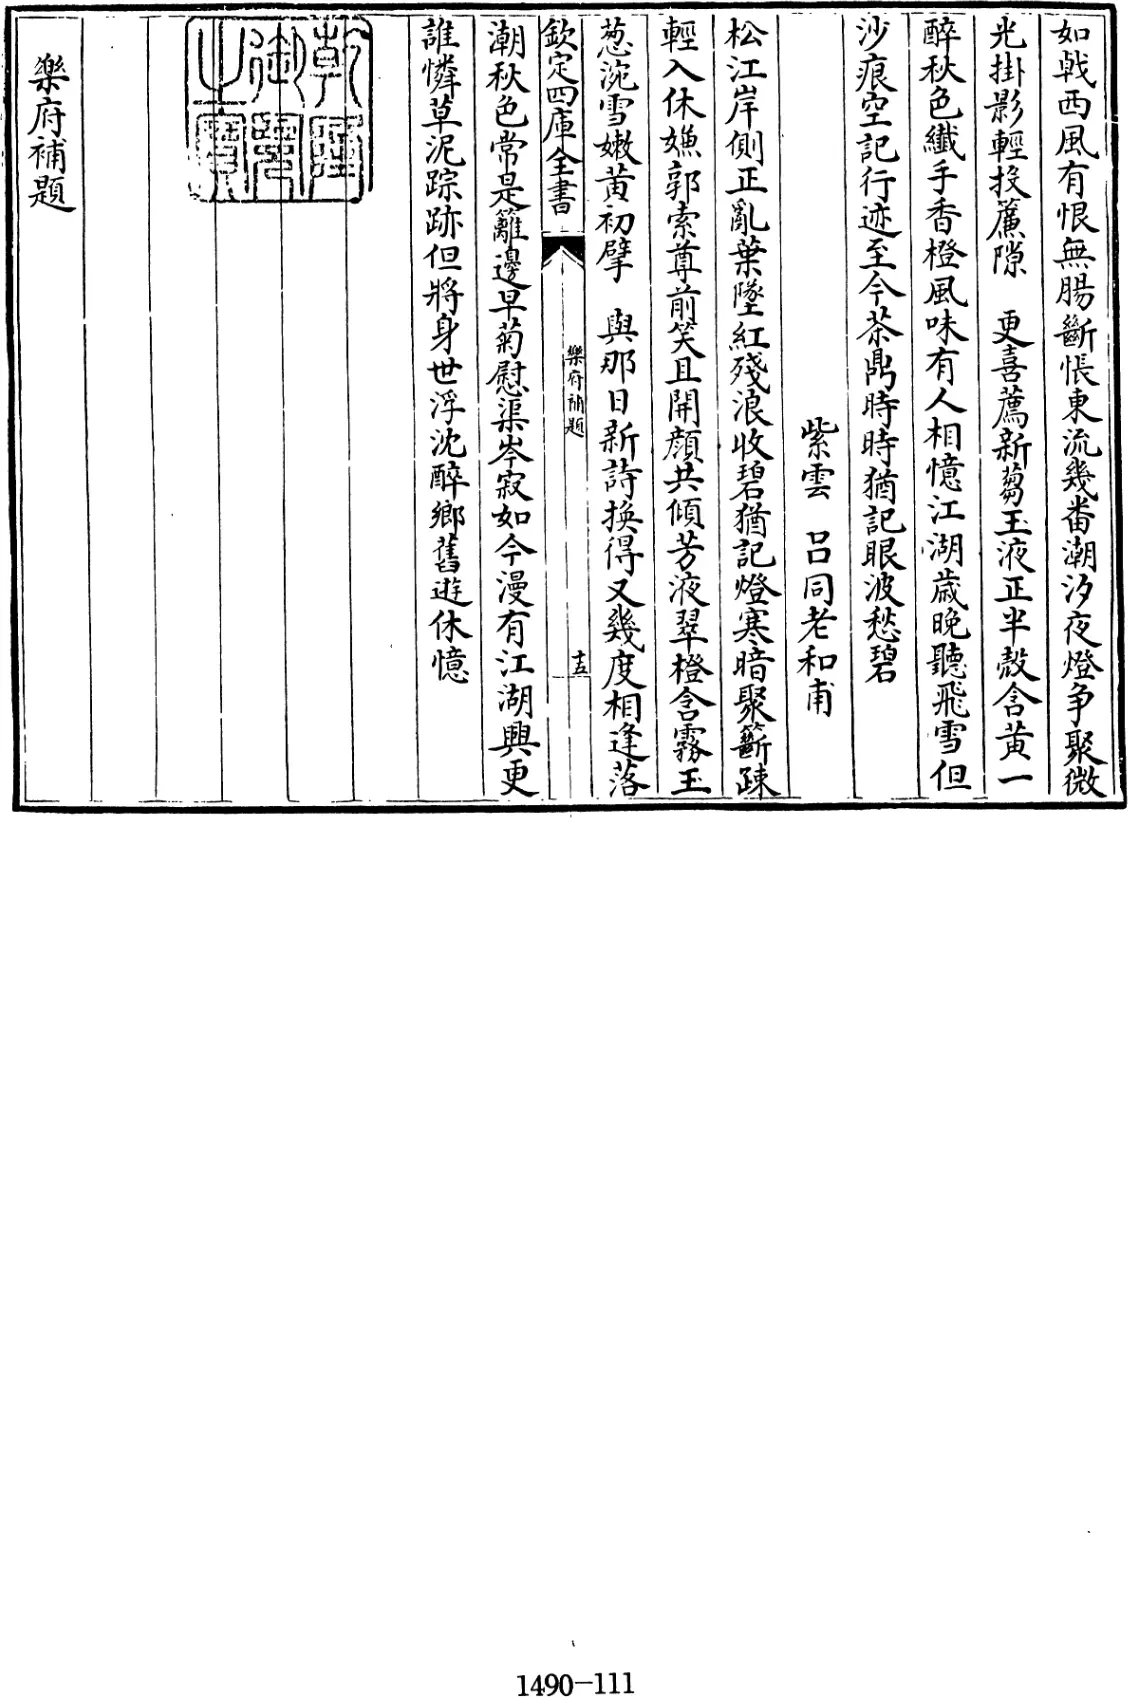 如戟西風有恨無腸斷悵東流幾畨潮汐夜燈争聚微
光掛影輕投簾隙　更喜薦新蒭玉液正半殻含黄一
醉秋色纎手香橙風味有人相憶江湖歳晩聽飛雪但
沙痕空記行迹至今茶鼎時時猶記眼波愁碧
紫雲　吕同老和甫
松江岸側正亂葉墜紅殘浪收碧猶記燈寒暗聚籪疎
輕入休嫌郭索尊前笑且開顔共傾芳液翠橙含霧玉
葱浣雪嫩黄初擘　與那日新詩换得又幾度相逢落
欽定四庫全書
樂府補題
十五
潮秋色常是籬邊早菊慰渠岑寂如今漫有江湖興更
誰憐草泥踪跡但將身世浮沈醉郷舊遊休憶
乾隆御覽之寶
樂府補題
1490-111